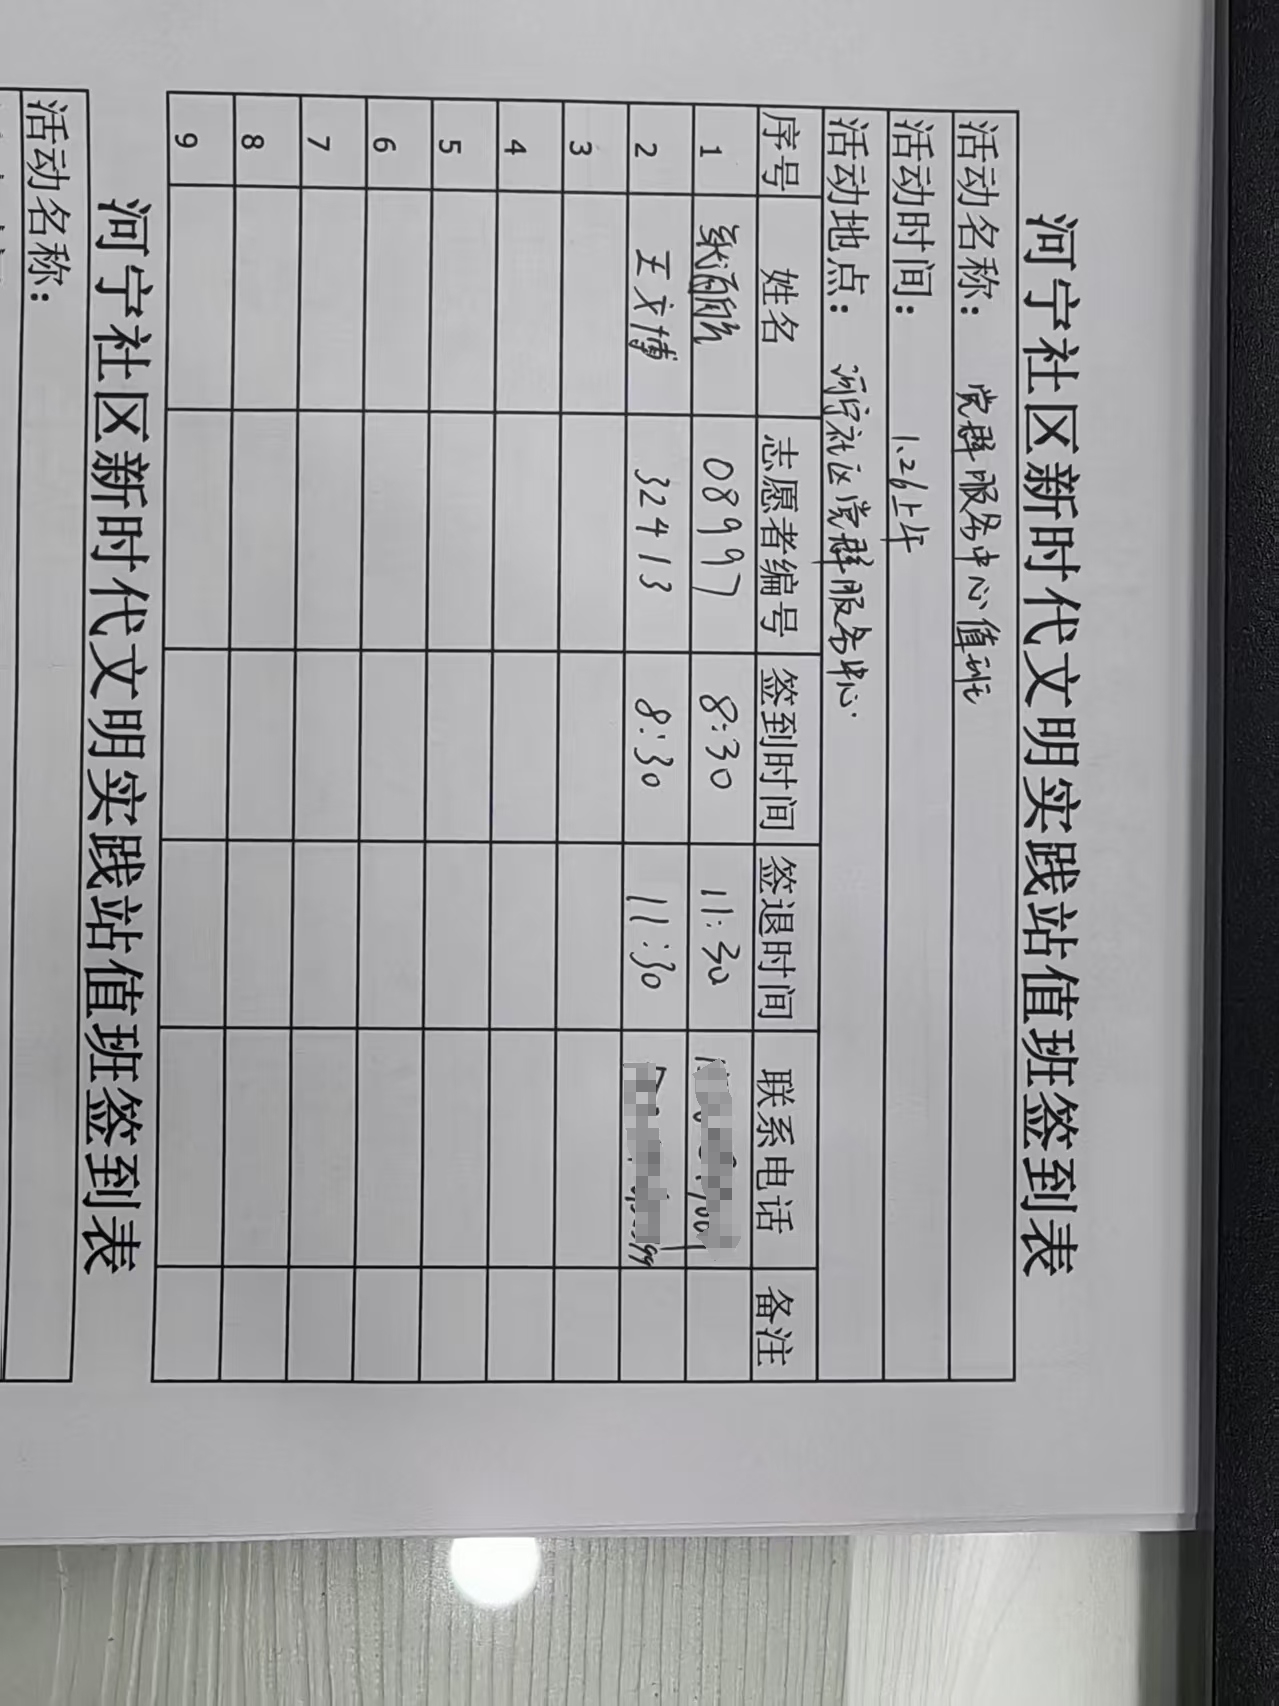 河宁社区新时代文明实践站值班签到表
活动名称： 党群服务中心值班
活动时间： 1.26上午
活动地点： 河宁社区党群服务中心.
序号 姓名 志愿者编号 签到时间 签退时间 联系电话 备注
1 08997 8:30 11:30
2 王文博 32413 8:30 11:30
3
4
5
6
7
8
9
河宁社区新时代文明实践站值班签到表
活动名称：